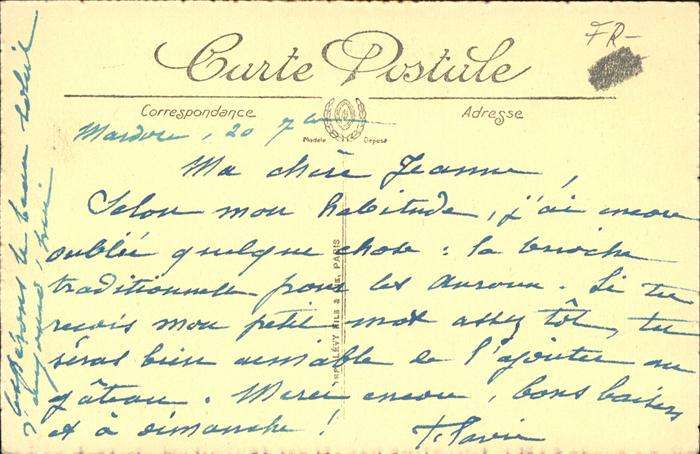 FR-
Carte Postale
Correspondance
Adresse
Modèle Déposé
20 7bre
Ma chère Jeanne,
Selon mon habitude, j'ai encore
oublié quelque chose : la brioche
traditionnelle pour les . Si tu
reçois mon petit mot assez tôt, tu
seras bien aimable de l'ajouter au
gâteau. Merci encore, bons baisers
et à dimanche !
LÉVY FILS & PARIS
Espérons le beau soleil
d'aujourd'hui